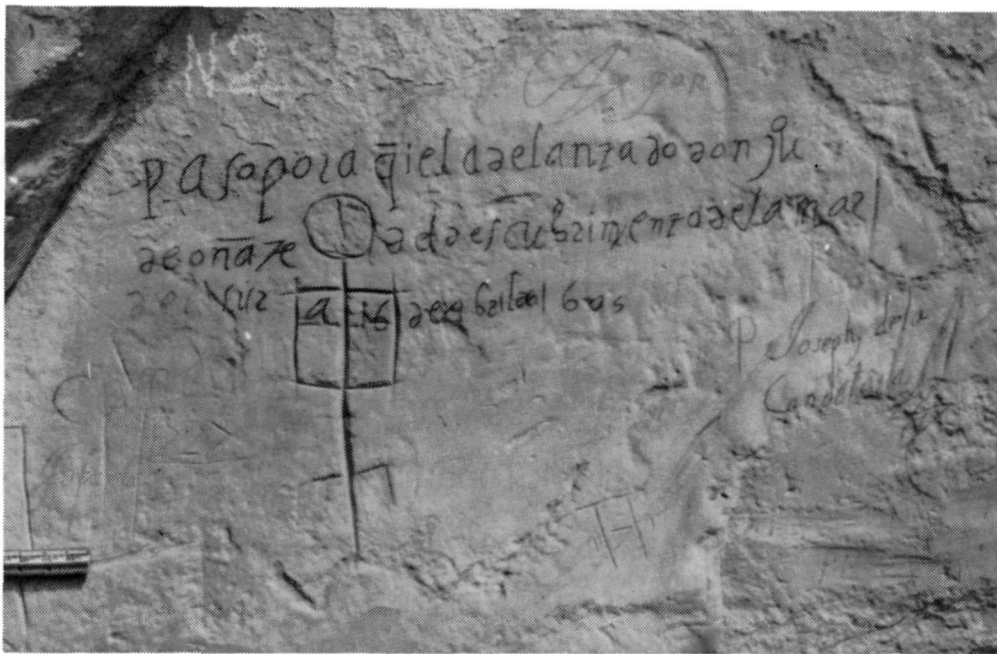 No
pasó por aq̄i el adelantado don jũ
de oñate al descubrimento de la mar
del sur a 16 de abril del 605
P Joseph de la
Candelaria